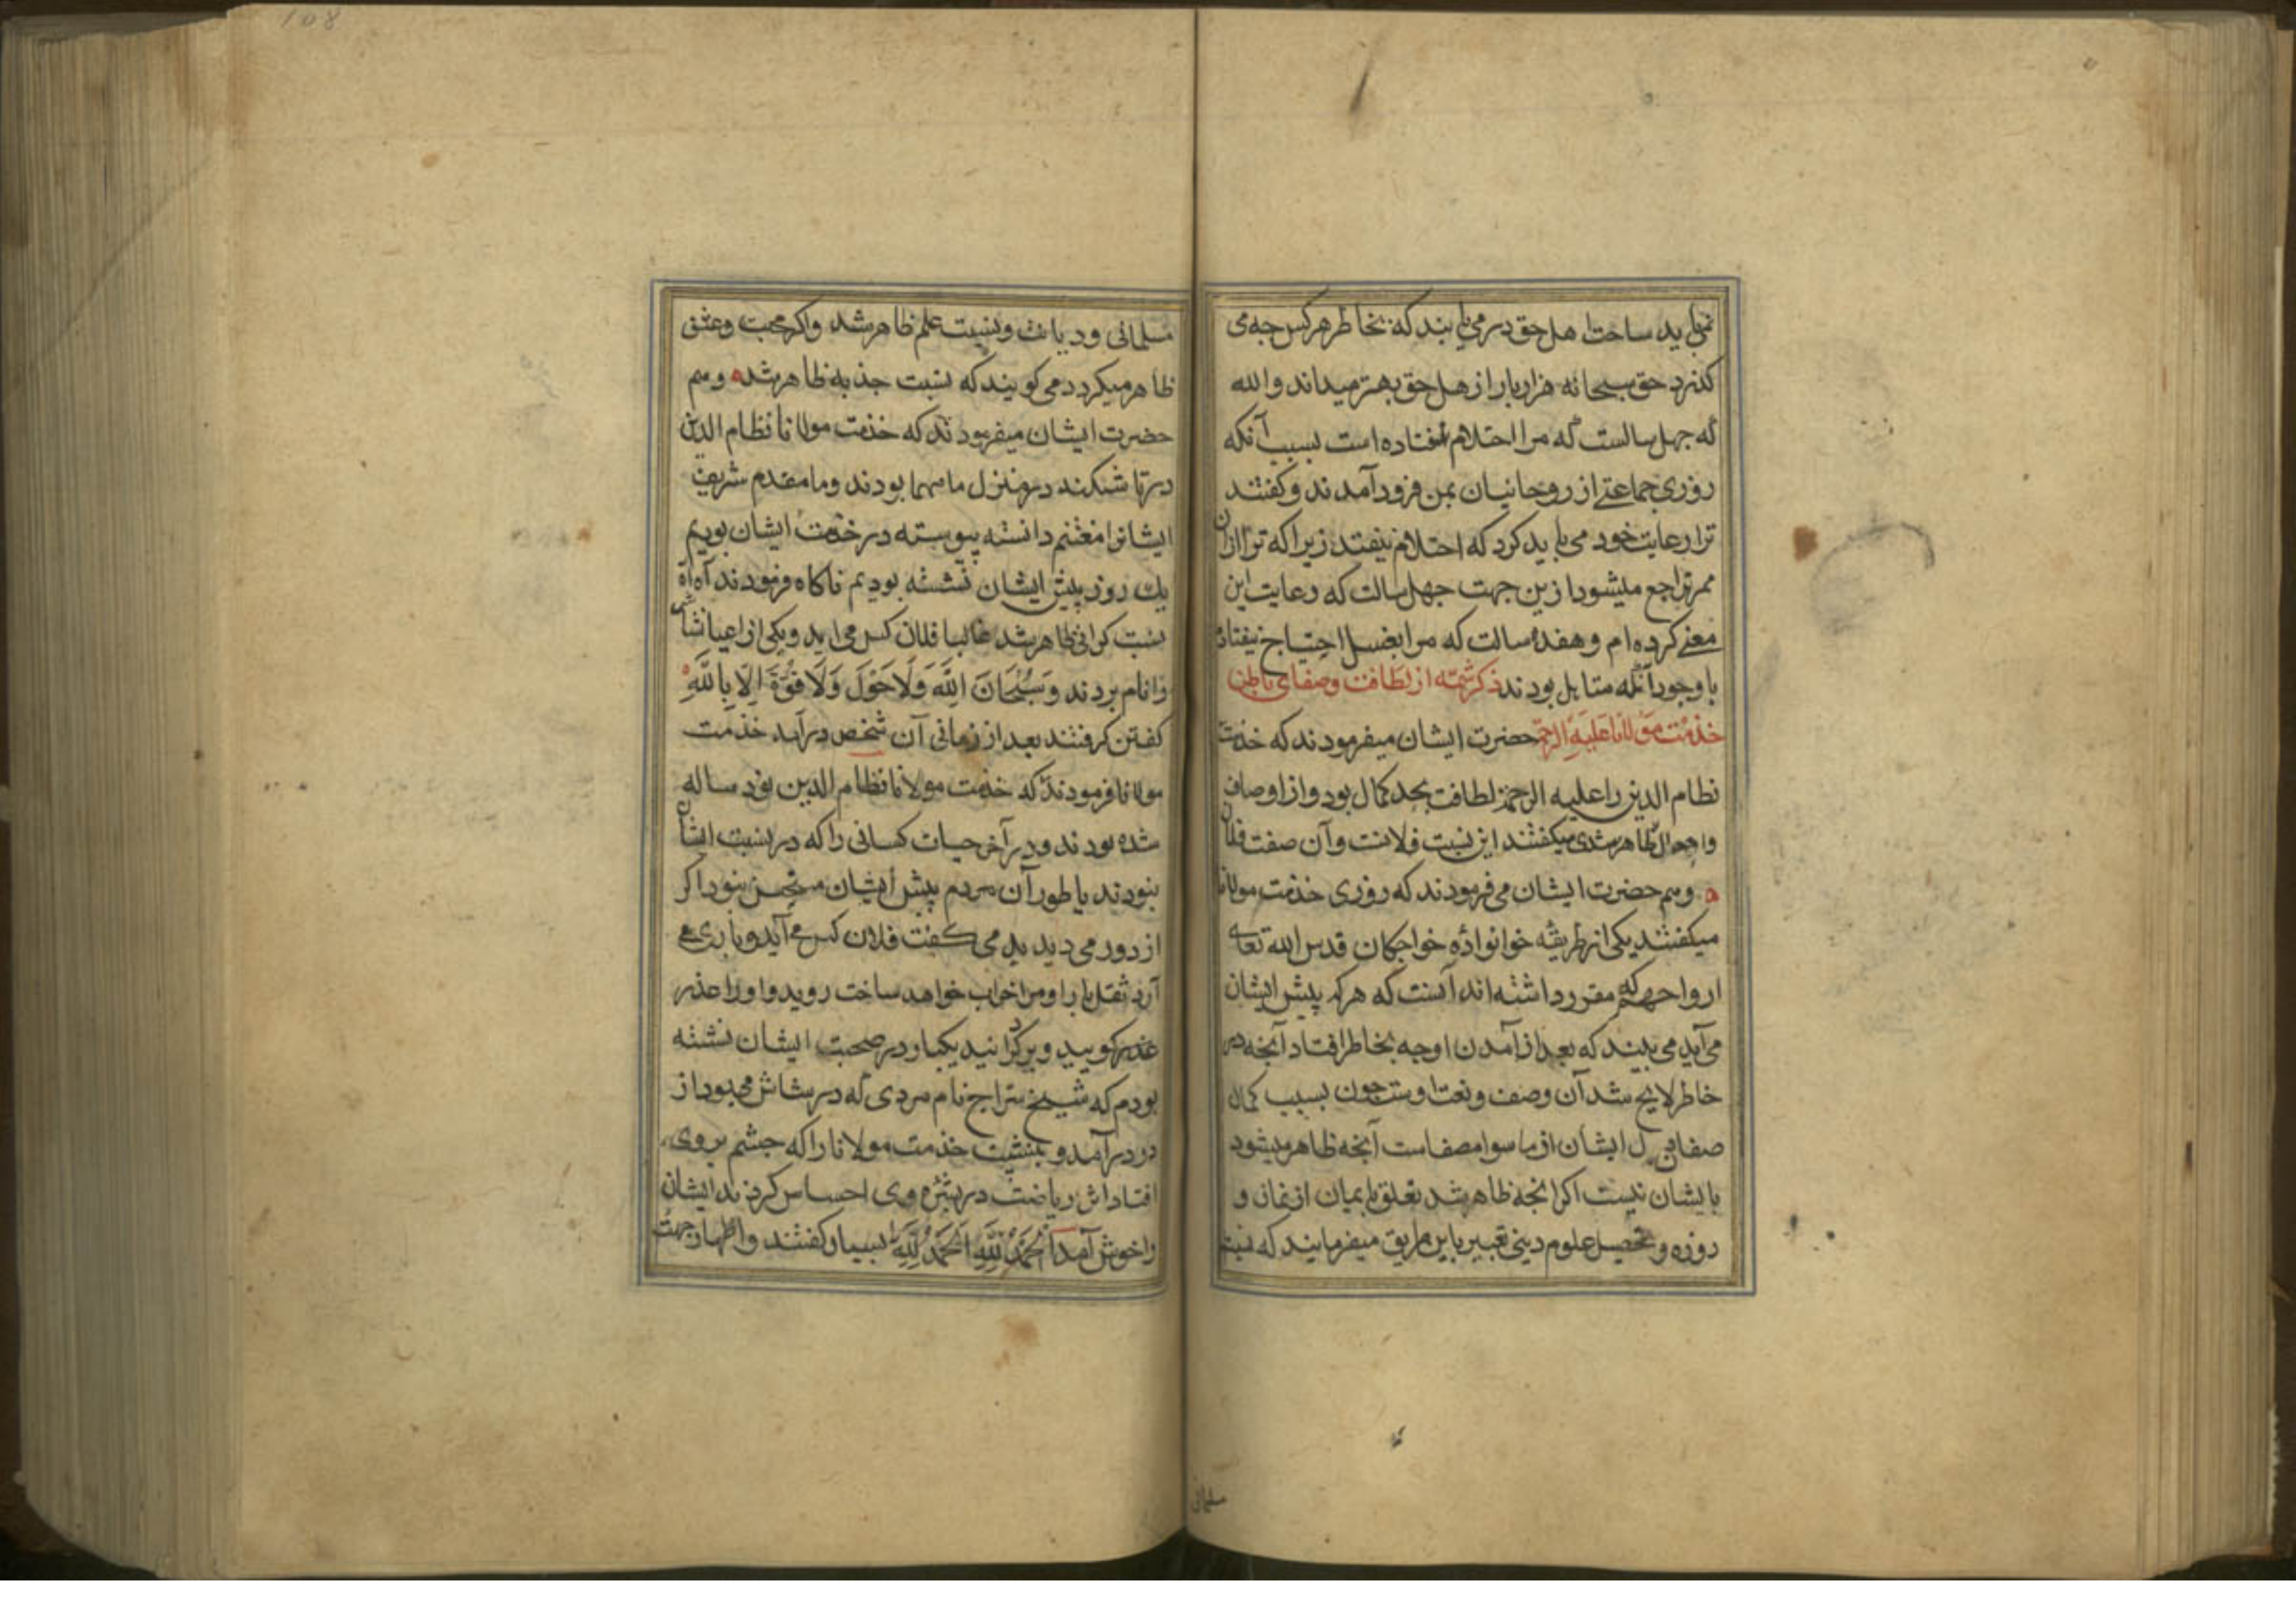 نمی‌باید ساخت اهل حق در می یابند که بخاطر هر کس چه می
کذرد حق سبحانه هزار بار از اهل حق بهتر میداند والله
که چهل سالست که مرا احتلام نیفتاده است بسبب آنکه
روزی جماعتی از روحانیان بمن فرود آمدند و کفتند
ترا رعایت خود می باید کرد که احتلام نیفتد زیرا که ترا ازان
راجع میشود ازین جهت چهل سالت که رعایت این
معنی کرده ام و هفده سالت که مرا بغسل احتیاج نیفتاد
با وجود آنکه متاهل بودند ذکر شمّه از لطافت و صفای باطن
خذمت مولانا علیه الرحمة حضرت ایشان میفرمودند که خذمت
نظام الدین را علیه الرحمة لطافت بحد کمال بود و از اوصاف
واحوال ظاهر شدی میکفتند این نسبت فلانست وآن صفت فلان
وهم حضرت ایشان می فرمودند که روزی خذمت مولانا
میکفتند یکی از طریقه خوانواده خواجکان قدس الله تعالی
ارواحهم که مقرر داشته اند آنست که هر که پیش ایشان
می آید می بینند که بعد از آمدن او چه بخاطر افتاد آنچه در
خاطر لایح شد آن وصف و نعت اوست چون بسبب کمال
صفا دل ایشان از ما سوا مصفاست آنچه ظاهر میشود
بایشان نیست اکر انچه ظاهر شد تعلق بایمان از نماز و
روزه و تحصیل علوم دینی تعبیر باین طریق میفرمایند که نسبت
مسلمانی
108
مسلمانی و دیانت و نسبت علم ظاهر شد واکر محبت وعشق
ظاهر میکردد می کویند که نسبت جذبه ظاهر شد وهم
حضرت ایشان میفرمودند که خذمت مولانا نظام الدین
در تاشکند در منزل ما مهما بودند وما مقدم شریف
ایشانرا مغتنم دانسته پیوسته در خذمت ایشان بودیم
یک روز پیش ایشان نشسته بودیم ناکاه فرمودند آه آه
نسبت کرانی ظاهر شد غالبا فلان کس می اید ویکی از اعیان شاش
را نام بردند وَسُبْحَانَ اللَّهِ وَلَا حَوْلَ وَلَا قُوَّةَ اِلَّا بِاللَّهِ
کفتن کرفتند بعد از زمانی آن شخص درآمد خذمت
مولانا فرمودند که خذمت مولانا نظام الدین نود ساله
شده بودند ودر آخر حیات کسانی را که در نسبت ایشان
نبودند یا طور آن مردم پیش ایشان مستحسن نبود اکر
از دور می دیدید می کفت فلان کس می آید و باری می
آرد ثقل بار او مرا خراب خواهد ساخت روید واورا عذر
عذر کویید و بر کردانید یکبار در صحبت ایشان نشسته
بودم که شیخ سراج نام مردی که در شاش می بود از
در درآمد و بنشست خذمت مولانا را که چشم بر وی
افتاد اثر ریاضت در بشره وی احساس کردند ایشان
را خوش آمد اَلْحَمْدُ لِلَّهِ اَلْحَمْدُ لِلَّهِ بسیار کفتند واظهار بهجت